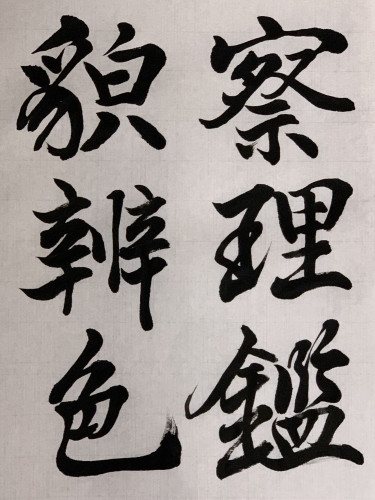 察理鑑
貌辨色